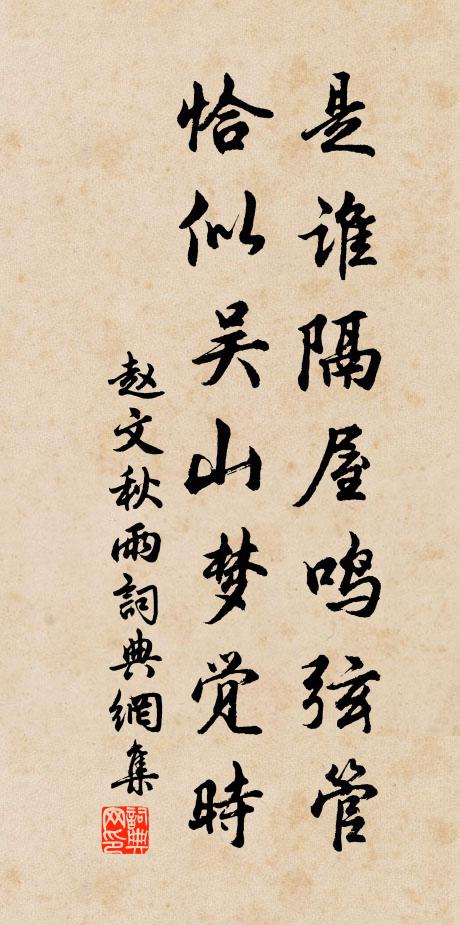 是谁隔屋鸣弦管
恰似吴山梦觉時
赵文秋雨詞典網集
詞典网印